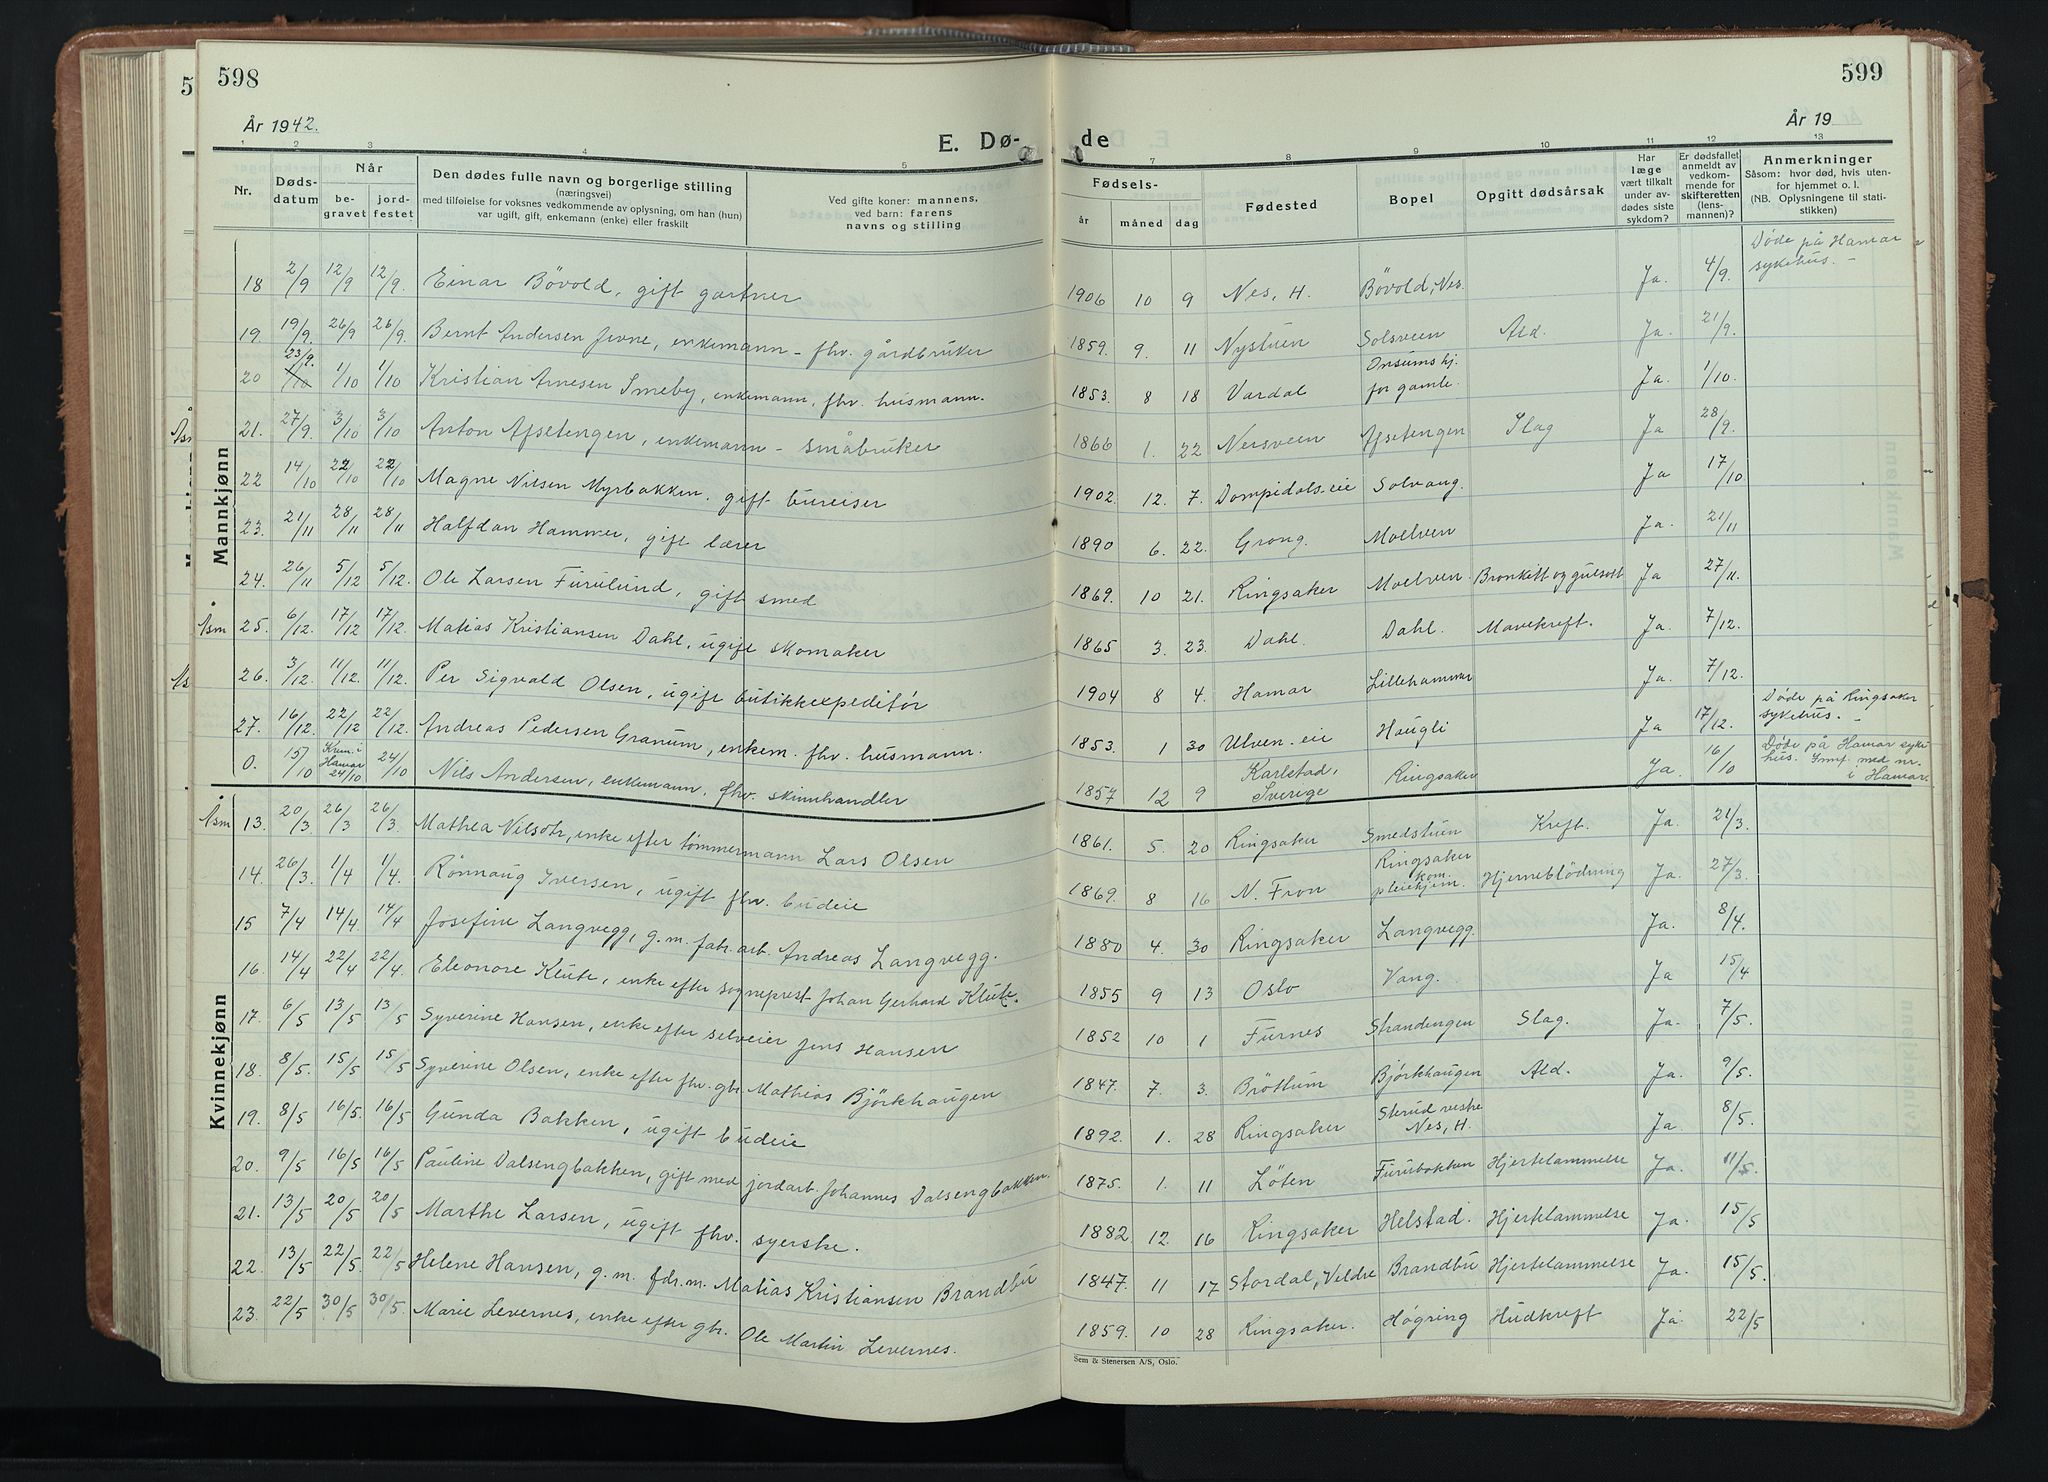 598
599
År 1942.
År 19
E. Dø- de
1 2 3 4 5 7 8 9 10 11 12 13
Nr.
Døds-
datum
Når
be-
gravet
jord-
festet
Den dødes fulle navn og borgerlige stilling
(næringsvei)
med tilføielse for voksnes vedkommende av oplysning, om han (hun)
var ugift, gift, enkemann (enke) eller fraskilt
Ved gifte koner: mannens,
ved barn: farens
navns og stilling
Fødsels-
år måned dag
Fødested
Bopel
Opgitt dødsårsak
Har
læge
vært tilkalt
under av-
dødes siste
sykdom?
Er dødsfallet
anmeldt av
vedkom-
mende for
skifteretten
(lens-
mannen)?
Anmerkninger
Såsom: hvor død, hvis uten-
for hjemmet o. l.
(NB. Oplysningene til stati-
stikken)
Mannkjønn
18 2/9 12/9 12/9. Einar Bövold, gift gartner 1906 10 9 Nes, H. Bövold, Nes. Ja. 4/9. Døde på Hamar sykehus. –
19. 19/9. 26/9 26/9. Bernt Andersen Jevne, enkemann – fhv. gårdbruker 1859. 9. 11 Nystuen Solsveen Ald. Ja. 21/9.
20 23/9. 1/10 1/10 Kristian Arnesen Smeby, enkemann, fhv. husmann. 1853. 8 18 Vardal Onsums hj. for gamle. Ja. 1/10.
21. 27/9. 3/10 3/10 Anton Afsetengen, enkemann – småbruker 1866 1. 22 Nersveen Afsetengen Slag Ja 28/9.
22 14/10 22/10 22/10 Magne Nilsen Myrbakken. gift bureiser 1902. 12. 7. Dompidals-eie Solvang. Ja 17/10
23. 21/11 28/11 28/11 Halfdan Hammer, gift lærer 1890 6. 22. Grong. Moelven Ja. 21/11
24. 26/11 5/12 5/12. Ole Larsen Furulund, gift smed 1869. 10 21. Ringsaker Moelven. Bronkitt og gulsott Ja 27/11.
Åsm 25. 6/12. 17/12 17/12. Matias Kristiansen Dahl, ugift skomaker 1865 3. 23. Dahl. Dahl. Mavekreft. Ja. 7/12.
26. 3/12. 11/12. 11/12. Per Sigvald Olsen, ugift butikkexpeditør 1904 8 4. Hamar Lillehammer Ja. 7/12.
27. 16/12. 22/12 22/12. Andreas Pedersen Granum, enkem. fhv. husmann. 1853. 1 30 Ulven-eie Haugli Ja 17/12. Døde på Ringsaker sykehus. –
0. 15/10 Krem. i Hamar 24/10 24/10 Nils Andersen, enkemann, fhv. skinnhandler 1857 12 9 Karlstad, Sverige Ringsaker Ja. 16/10 Døde på Hamar sykehus. Innf. med nr. i Hamar.
Kvinnekjønn
Åsm 13. 20/3 26/3 26/3. Mathea Nilsdtr, enke efter tømmermann Lars Olsen 1861. 5. 20 Ringsaker Smedstuen Kreft. Ja. 21/3.
14. 26/3. 1/4 1/4. Rønnaug Iversen, ugift fhv. budeie 1869. 8 16 N. Fron Ringsaker kom. pleiehjem. Hjerneblödning Ja. 27/3.
15 7/4 14/4. 14/4 Josefine Langvegg, g.m. fabr.arb. Andreas Langvegg. 1880 4. 30 Ringsaker Langvegg. Ja. 8/4.
16. 14/4 22/4 22/4. Eleonore Klüte, enke efter sogneprest Johan Gerhard Klüte. 1855 9 13 Oslo Vang. Ja 15/4
17. 6/5 13/5 13/5 Syverine Hansen, enke efter selveier Jens Hansen 1852 10 1 Furnes Strandengen Slag. Ja. 7/5.
18. 8/5. 15/5 15/5 Syverine Olsen, enke efter fhv. gbr. Mathias Björkhaugen 1847. 7. 3. Bröttum Björkhaugen Ald. Ja. 9/5.
19. 8/5 16/5. 16/5 Gunda Bakken, ugift budeie 1892. 1. 28 Ringsaker Sterud vestre Nes, H. Ja. 8/5.
20. 9/5 16/5 16/5 Pauline Dalsengbakken, gift med jordarb. Johannes Dalsengbakken. 1875. 1. 11 Löten Furubakken Hjertelammelse Ja. 11/5.
21. 13/5 20/5 20/5 Marthe Larsen, ugift fhv. syerske. 1882. 12. 16 Ringsaker Helstad. Hjertelammelse Ja. 15/5
22. 13/5 22/5. 22/5 Helene Hansen, g.m. fdr.m. Matias Kristiansen Brandbu 1847. 11 17 Stordal, Veldre Brandbu Hjertelammelse Ja. 15/5.
23. 22/5 30/5 30/5. Marie Levernes, enke efter gbr. Ole Martin Levernes. 1859. 10 28 Ringsaker. Högring Hudkreft Ja. 22/5
Sem & Stenersen A/S, Oslo.